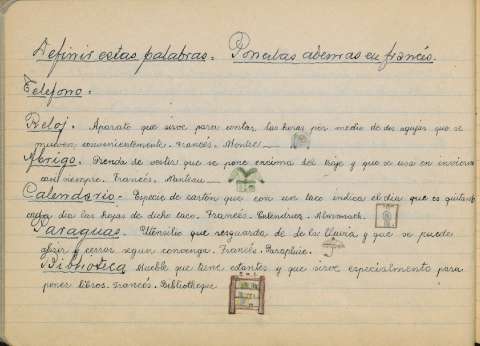 Definir estas palabras. Ponerlas además en francés.
Teléfono.
Reloj. Aparato que sirve para contar las horas por medio de dos agujas que se
mueven convenientemente. Francés. Montre
Abrigo. Prenda de vestir que se pone encima del traje y que se usa en invierno
casi siempre. Francés. Manteau
Calendario. Especie de cartón que con un taco indica el día que es quitando
cada día las hojas de dicho taco. Francés. Calendrier. Almanach.
Paraguas. Utensilio que resguarda de de la lluvia y que se puede
abrir y cerrar según convenga. Francés. Parapluie.
Biblioteca Mueble que tiene estantes y que sirve especialmente para
poner libros. Francés. Bibliotheque